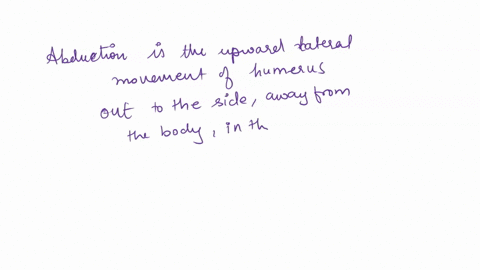 Abduction is the upward lateral
movement of humerus
out to the side, away from
the body, in th